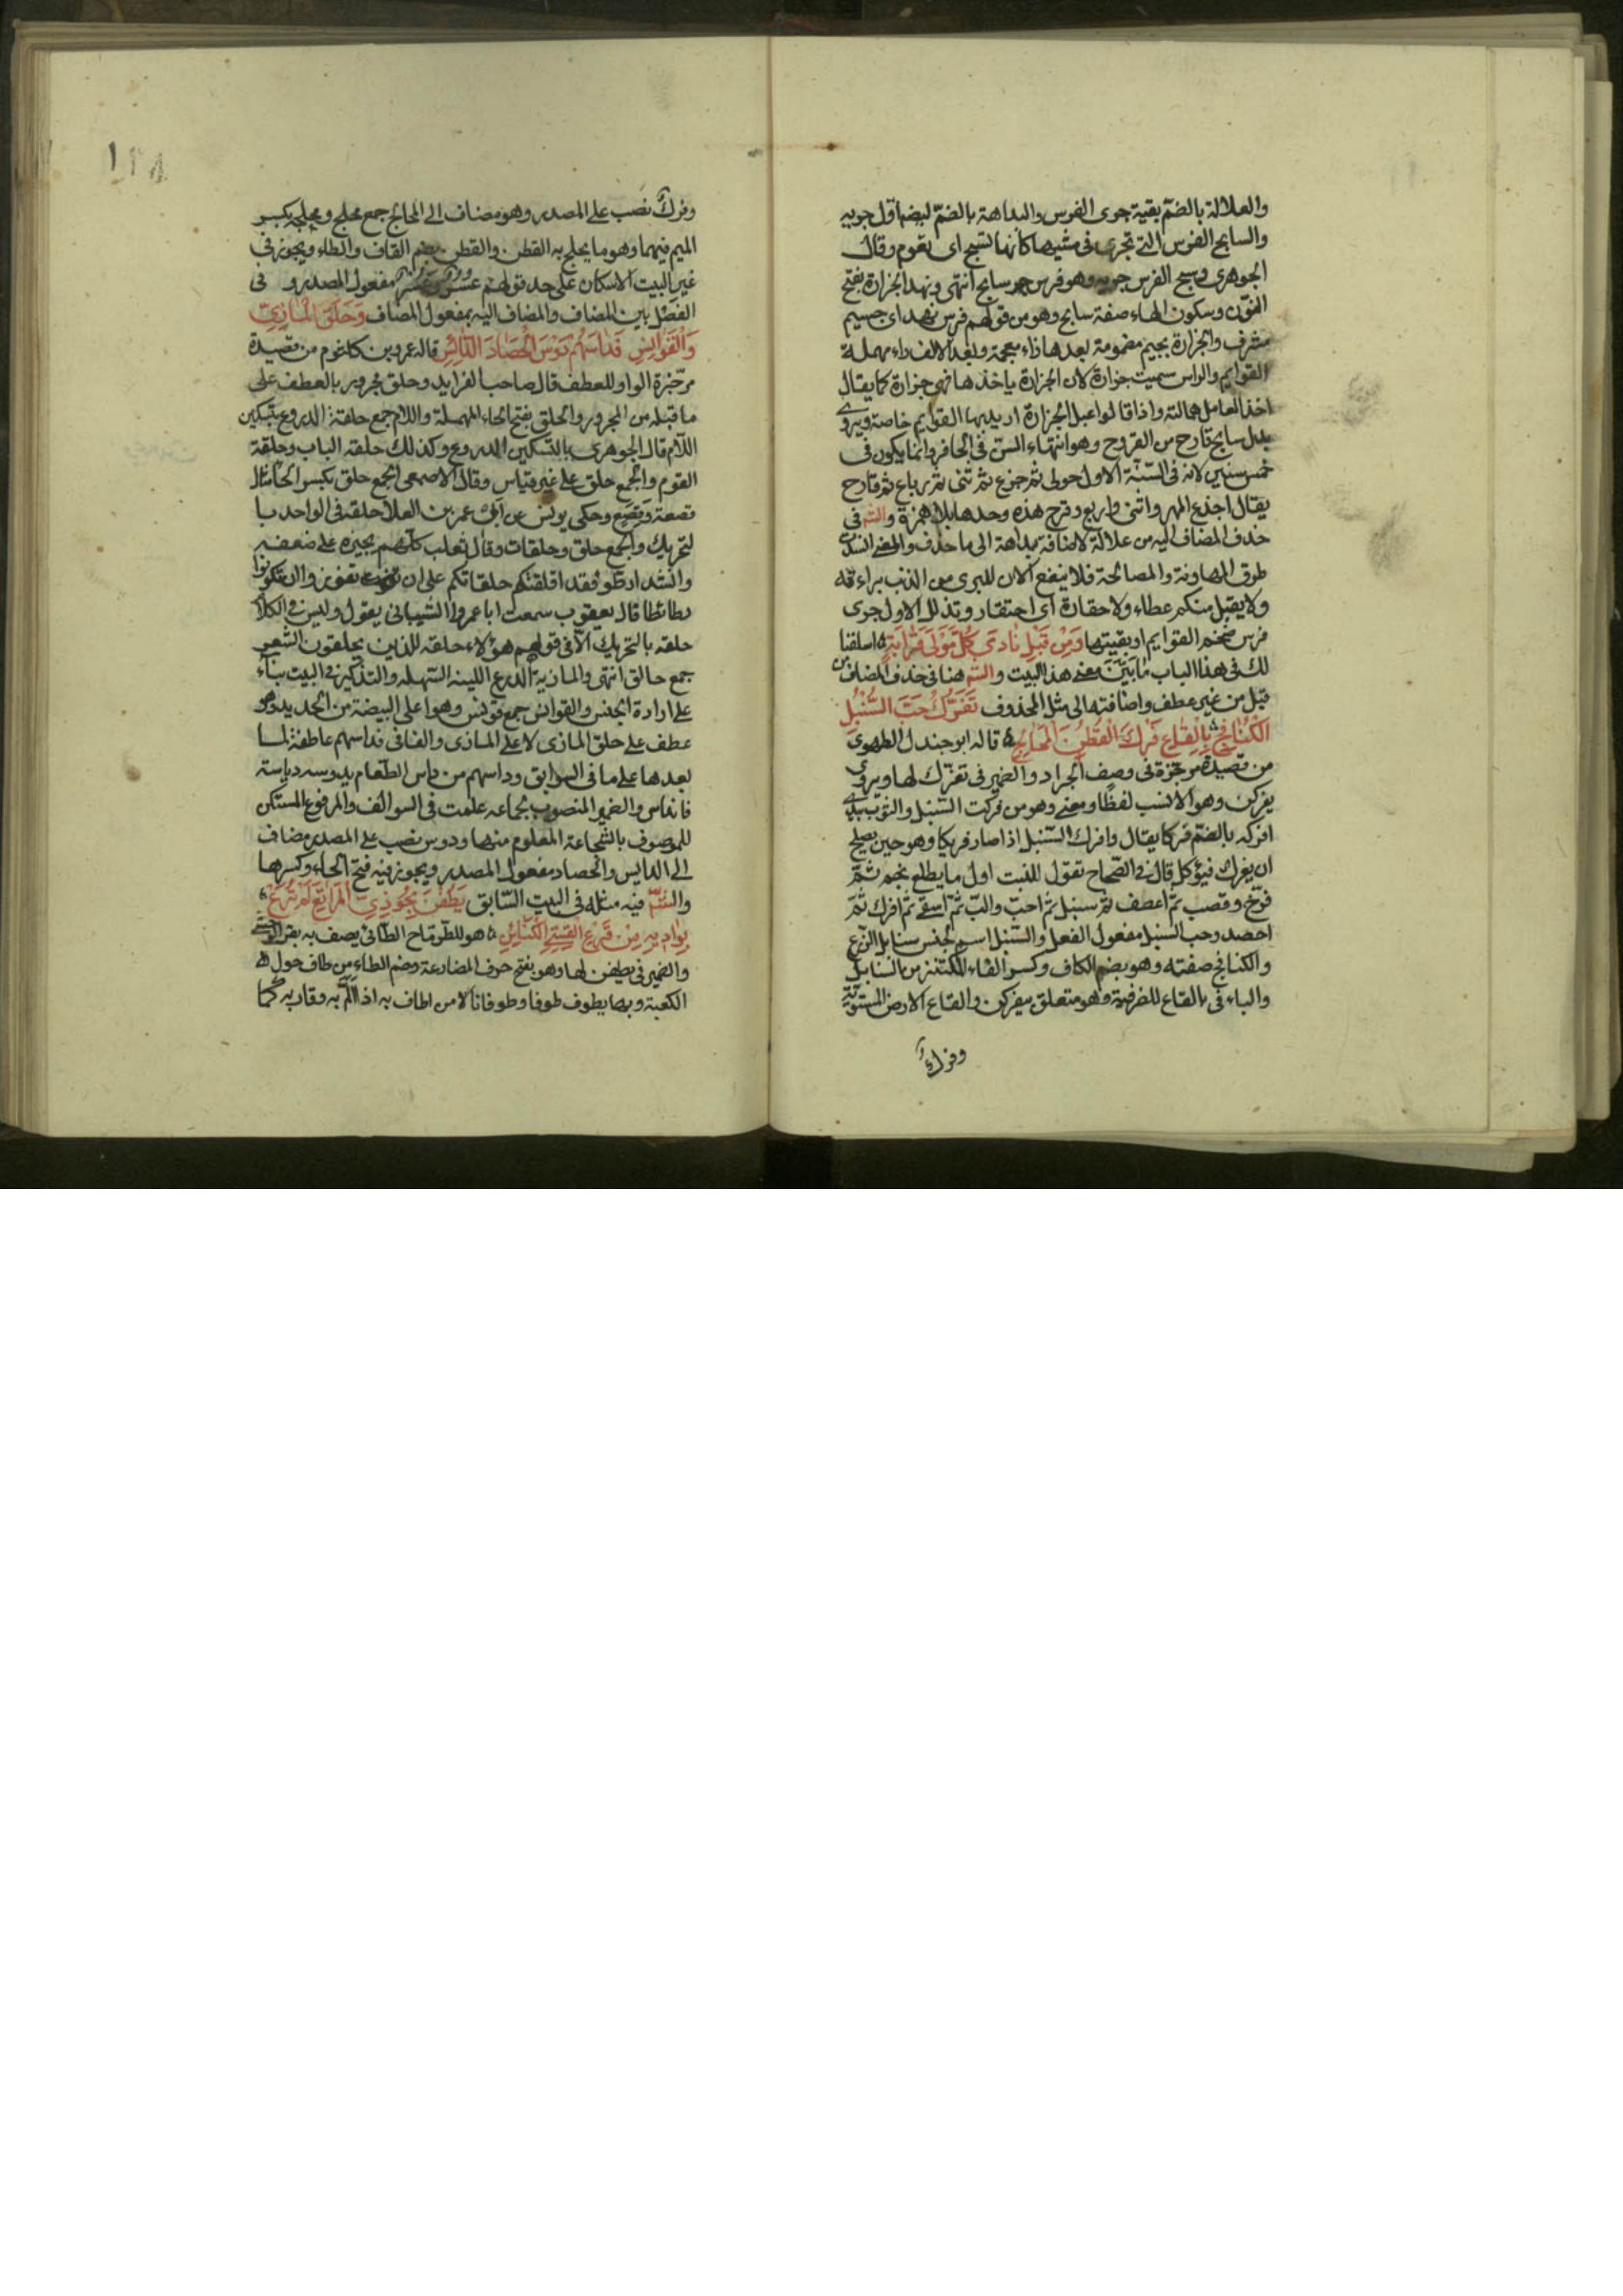 والعلالة بالضم بقية جرى الفرس والبداهة بالضم ايضا اول جريه
والسابح الفرس التى تجرى فى مشيها كأنها تسبح اى تعوم وقال
الجوهرى وسبح الفرس جريه وهو فرس سابح انتهى ونهد الجزارة بفتح
النون وسكون الهاء صفة سابح وهو من قولهم فرس نهد اى جسيم
مشرف والجزارة بجيم مضمومة بعدها زاء معجمة وبعد الالف راء مهملة
القوايم والراس سميت جزارة لان الجزارة ياخذها فهى جزارة كما يقال
اخذ العامل عمالته واذا قالوا عبل الجزارة اريد بها القوايم خاصة ويروى
بدل سابح قارح من القروح وهو انتهاء السن فى الحافر وانما يكون فى
خمس سنين لانه فى السنة الاول حولى ثم جذع ثم ثنى ثم رباع ثم قارح
يقال اجذع المهر واثنى واربع وقرح هذه وحدها بلا همزة والشم فى
حذف المضاف اليه من علالة لاضافة بداهة الى ما حذف والمعنى انسدت
طرق المهاونة والمصالحة فلا ينفع الان للبرى من الذنب براءته
ولا يقبل منكم عطاء ولا حقارة اى احتقار وتذلل الاول جرى
فرس ضخم القوايم او بقيتها وَمِنْ قَبْلِ نَادَى كُلُّ مَوْلَى قَرَابَةٍ اسلفنا
لك فى هذا الباب ما يتبين معنى هذا البيت والشم هنا فى حذف المضاف من
قبل من غير عطف واضافته الى مثل المحذوف تَفَرَّكَ حَبَّ السُّنْبُلِ
الكُنَافِجِ بِالْقَاعِ فَرْكَ الْقُطْنَ الْمَحَالِجِ قاله ابو جندل الطهوى
من قصيدة مرجزة فى وصف الجراد والضمير فى تفرك لها ويروى
يفركن وهو الانسب لفظا ومعنى وهو من فركت السنبل والثوب بيدى
افركه بالضم فركا يقال وافرك السنبل اذا صار فريكا وهو حين يصلح
ان يفرك فيؤكل قال فى الصحاح تقول للنبت اول ما يطلع نجم ثم
فرخ وقصب ثم اعصف ثم سنبل ثم احب والب ثم اسفى ثم افرك ثم
احصد وحب السنبل مفعول الفعل والسنبل اسم لجنس سنابل الزرع
والكنافج صفته وهو بضم الكاف وكسر الفاء المكتنز من السنابل
والباء فى بالقاع للظرفية وهو متعلق بيفركن والقاع الارض المستوية
وفرك
١٢٨
وفرك نصب على المصدر وهو مضاف الى المحالج جمع محلج ومحلجه بكسر
الميم فيهما وهو ما يحلج به القطن والقطن بضم القاف والطاء ويجوز فى
غير البيت الاسكان على حد قولهم عسر وعسر مفعول المصدر و فى
الفصل بين المضاف والمضاف اليه بمفعول المضاف وَحَلَقِ الْمَاذِىِّ
وَالْقَوَانِسِ فَدَاسَهُمْ دَوْسَ الْحَصَادَ الدَّائِسِ قاله عمرو بن كلثوم من قصيدة
مرجزة الواو للعطف قال صاحب الفرايد وحلق مجرور بالعطف على
ما قبله من المجرور والحلق بفتح الحاء المهملة واللام جمع حلقة الدروع بتسكين
اللام قال الجوهرى بالتسكين الدروع وكذلك حلقه الباب وحلقة
القوم والجمع حلق على غير قياس وقال الاصمعى الجمع حلق بكسر الحا مثال
قصعة وقصع وحكى يونس عن ابى عمر بن العلا حلقه فى الواحد با
لتحريك والجمع حلق وحلقات وقال ثعلب كلهم يجيزه على ضعفه
وانشد ارطوا فقد اقلقتم حلقاتكم على ان تفوزوا ان تكونوا
رطائطا قال يعقوب سمعت ابا عمروا الشيبانى يقول وليس فى الكلا
حلقه بالتحريك الا فى قولهم هؤلاء حلقه للذين يحلقون الشعر
جمع حالق انتهى والماذية الدرع اللينه السهله والتذكير فى البيت بناء
على ارادة الجنس والقوانس جمع قونس وهو اعلى البيضة من الحديد وهو
عطف على حلق الماذى لا على الماذى والفا فى فداسهم عاطفة لما
بعدها على ما فى السوابق وداسهم من داس الطعام يدوسه دياسته
فانداس والضمير المنصوب لجماعه علمت فى السوالف والمرفوع المستكن
للموصوف بالشجاعة المعلوم منها ودوس نصب على المصدر مضاف
الى الدايس والحصاد مفعول المصدر ويجوز فيه فتح الحاء وكسرها
والشم فيه مثله فى البيت السابق يَطُفْنَ بِحُوزِىِّ الْمَرَاتِعِ لَمْ تُرَعْ
بِوَادِيهِ مِنْ قَرْعِ الْقِسِىَّ الْكَنَائِنِ هو للطرماح الطائى يصف به بقر الوحش
والضمير فى يطفن لها وهو بفتح حرف المضارعة وضم الطاء من طاف حول
الكعبة وبها يطوف طوفا وطوفانا لا من اطاف به اذا الم به وقاربه كما